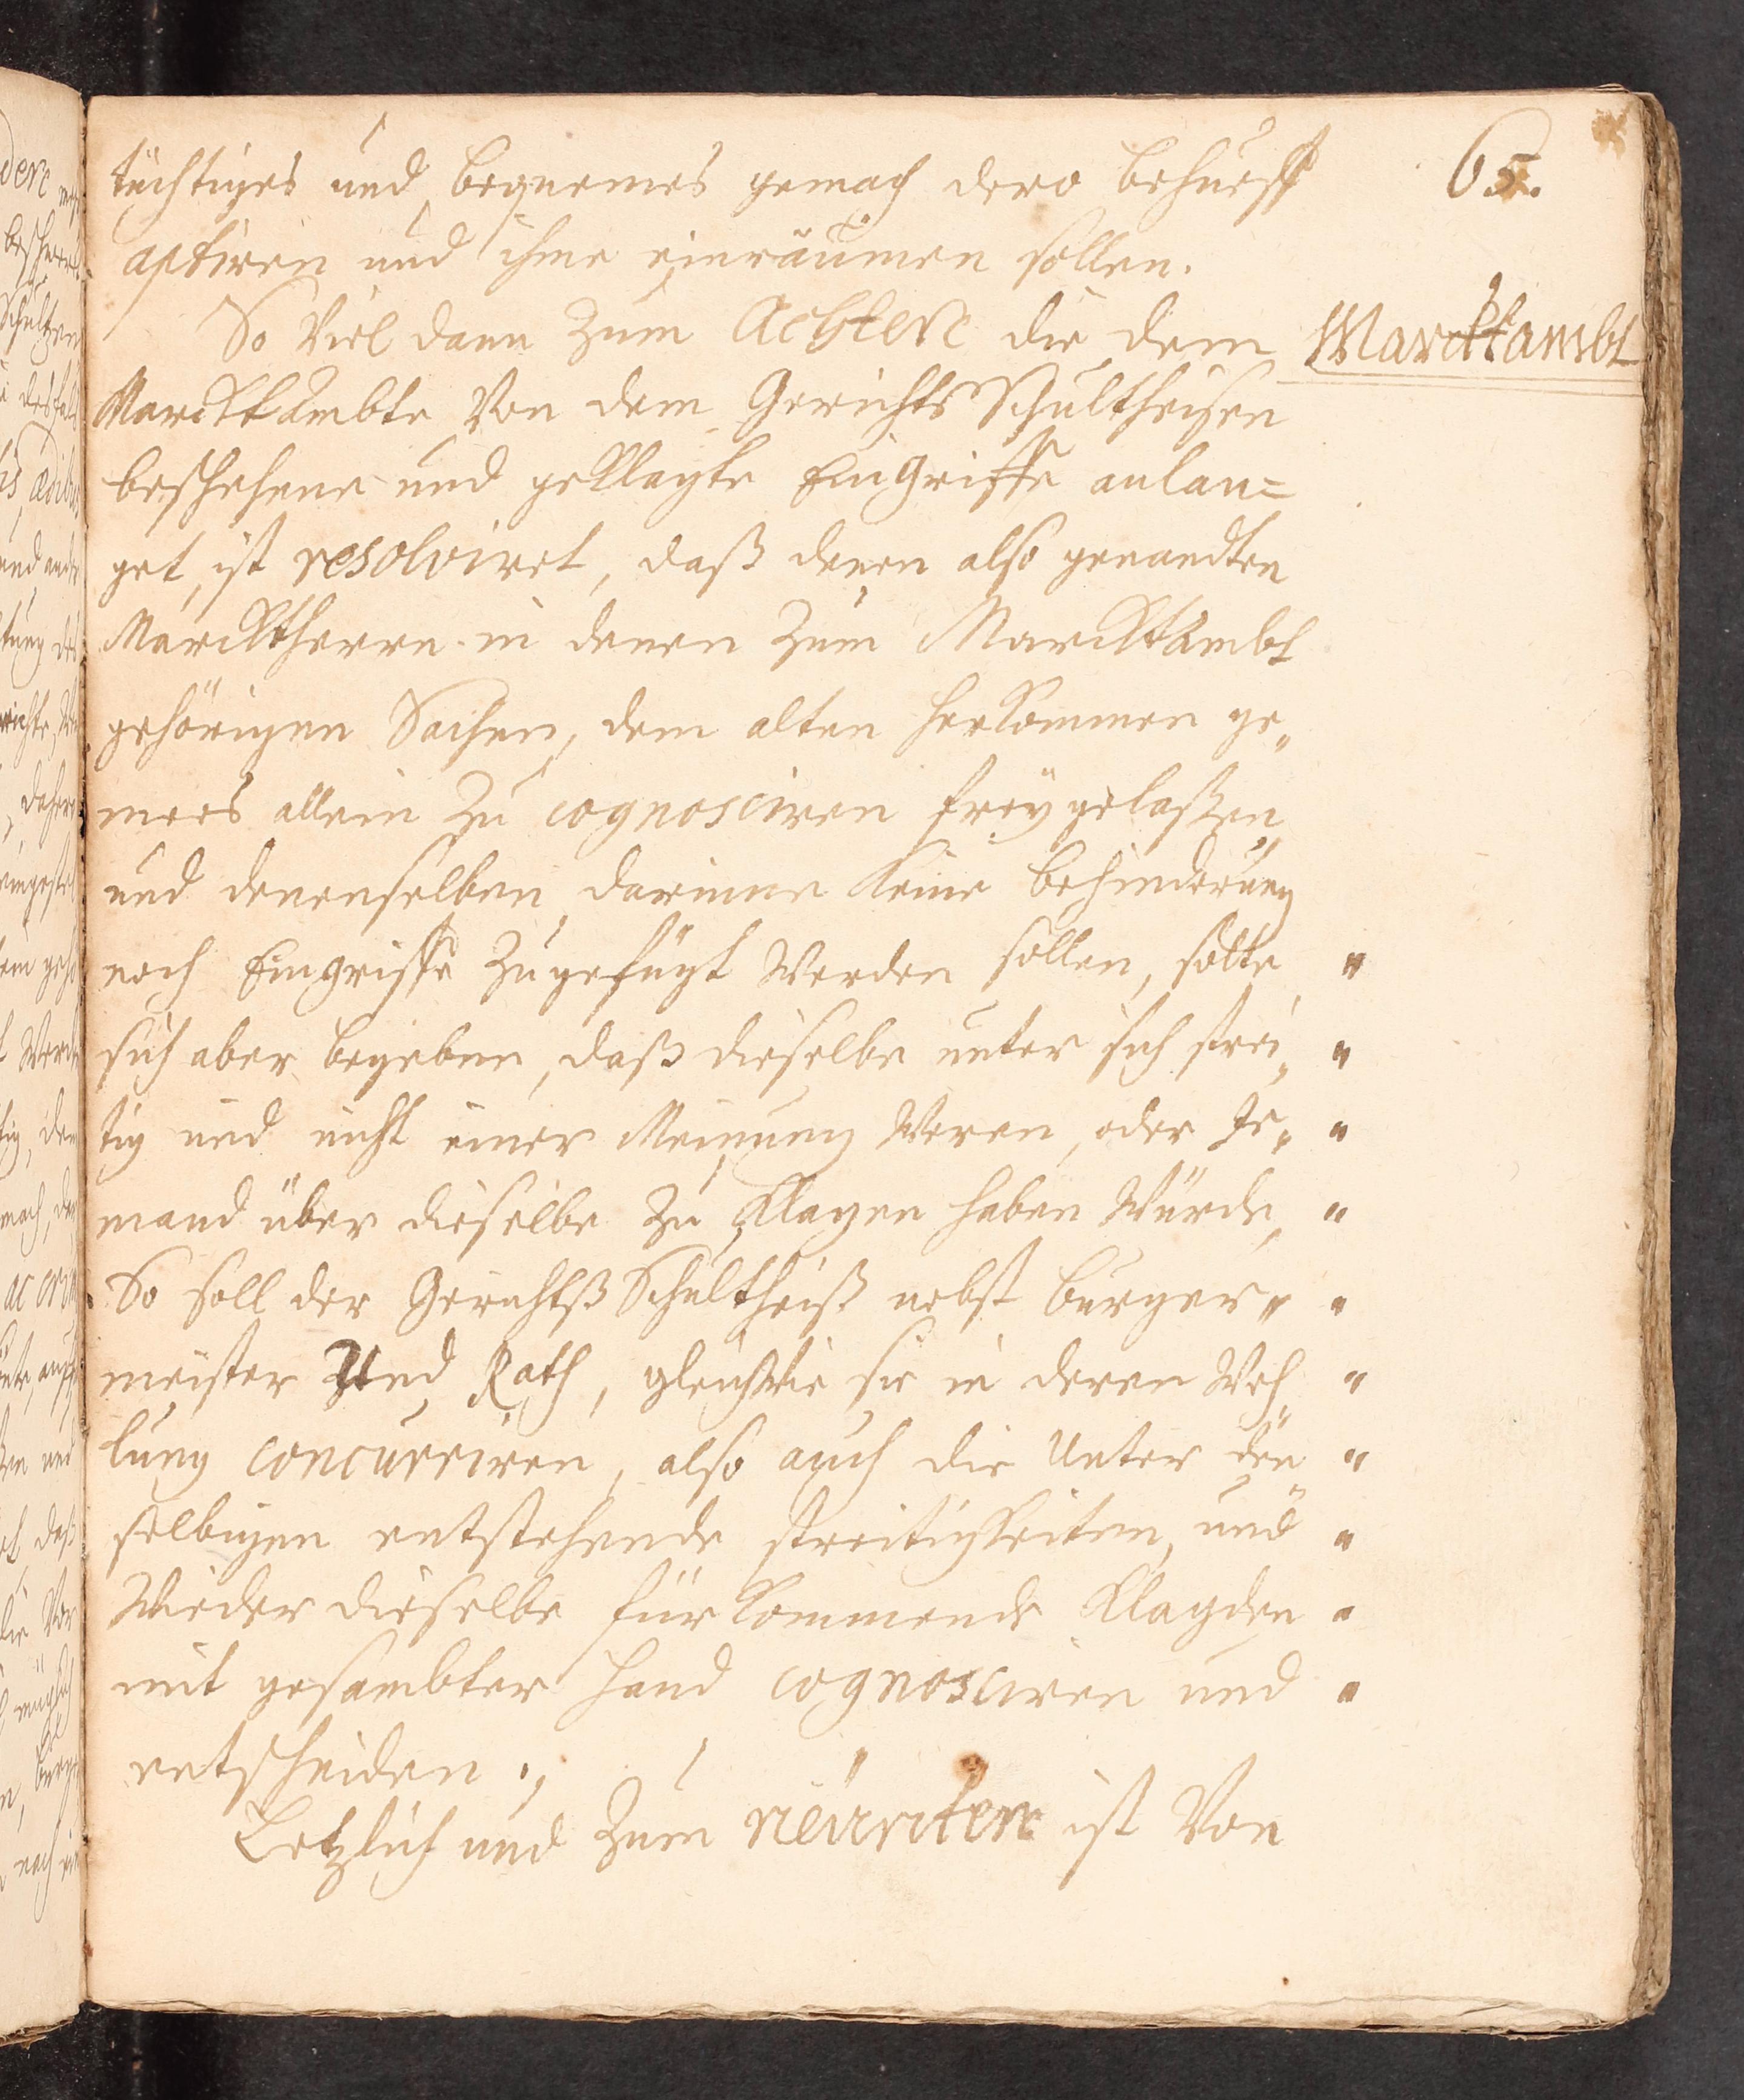 65.
tüchtiges und bequemes gemach dero behueff
aptiren und ihme einräumen sollen.
So Viel dann zum Achten die dem
Marcktambt
Marcktambte Von dem Gerichts Schultheisen
beschehene und geklagte Eingriffe anlan=
get, ist resolviret, daß denen also genandten
Marcktherrn in denen zum Marcktambt
gehörigen Sachen, dem alten herkommen ge„
mees allein zu cognosciren freygelaßen
und denenselben darinne keine behinderung
noch Eingriffe zugefügt Werden sollen, solte "
sich aber begeben, daß dieselbe unter sich strei„ "
tig und nicht einer Meinung Weren, oder Je„ "
mand über dieselbe zu Klagen haben Würde, "
So soll der Gerichtß Schultheiß nebst burger„ "
meister Und Rath, gleichwie sie in deren Weh„ "
lung concurriren, also auch die Unter den "
selbigen entstehende streitigkeiten, und "
Wieder dieselbe fürkommende Klagden "
mit gesambter hand cognosciren und "
entscheiden.,
Letzlich und zum neunten ist Von